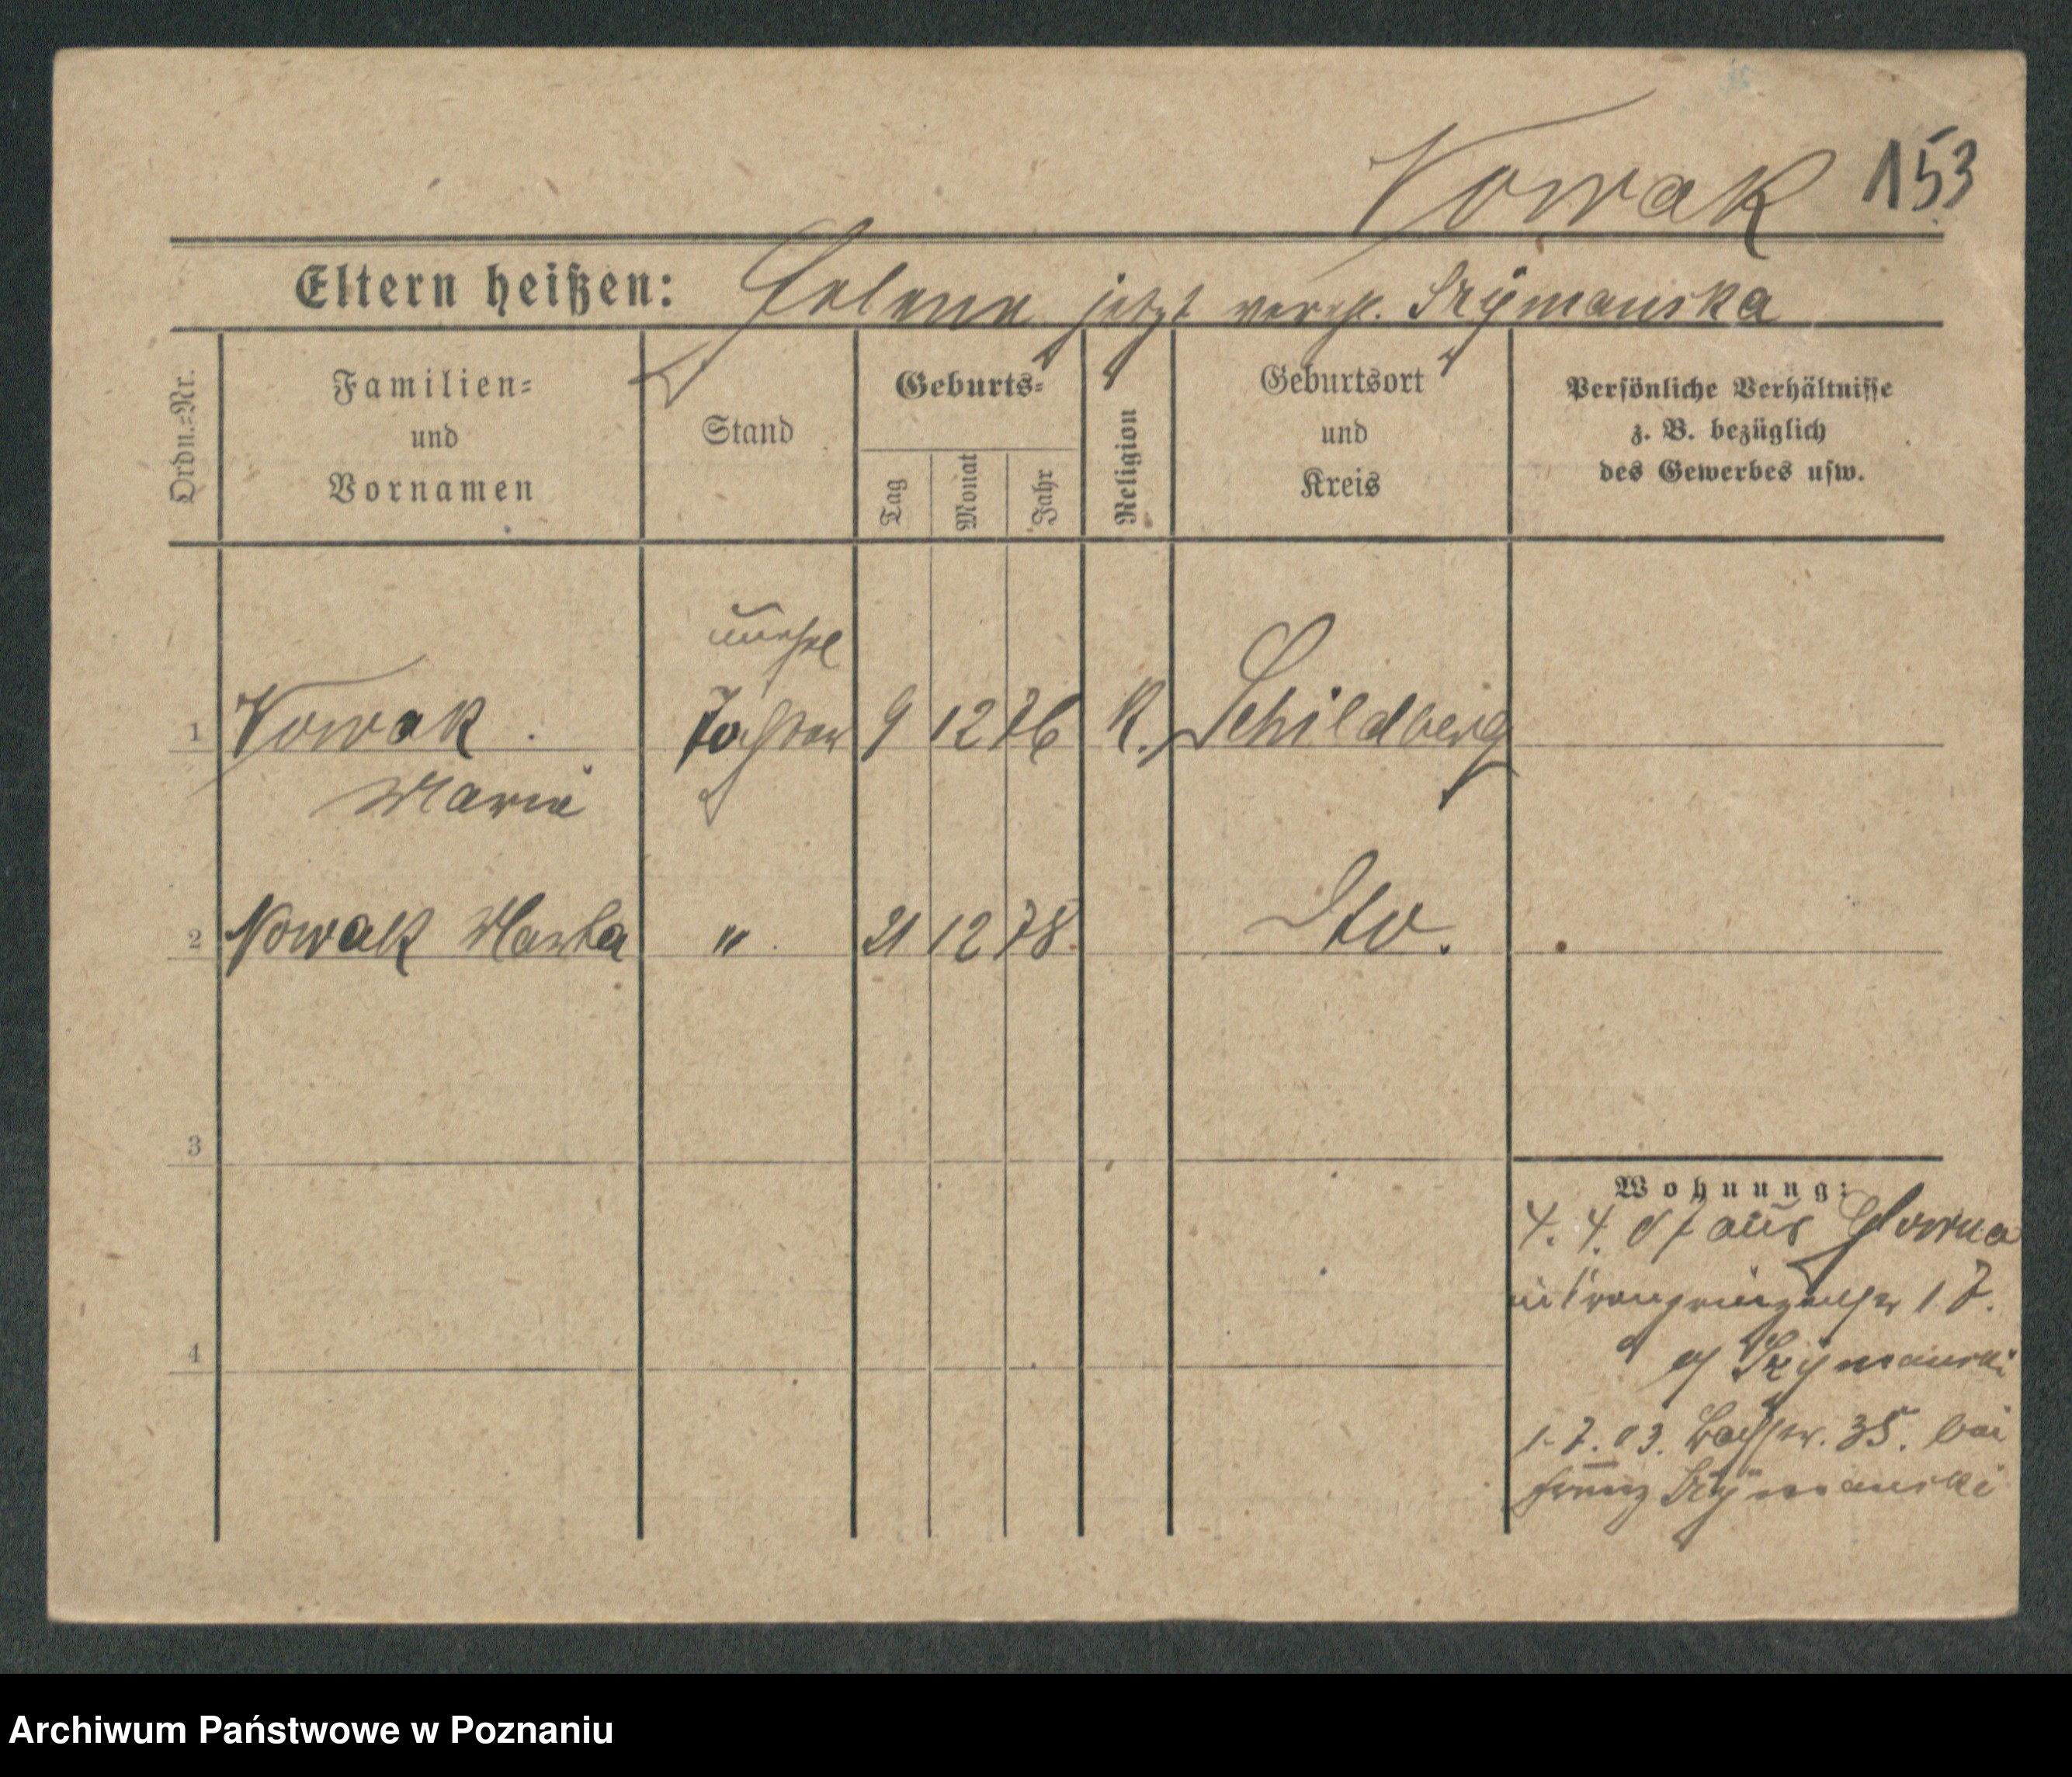 Nowak 153
Eltern heißen: Helene jetzt verehl. Szÿmanska
Ordn.=Nr.
Familien=
und
Vornamen
Stand
Geburts=
Tag
Monat
Jahr
Religion
Geburtsort
und
Kreis
Persönliche Verhältnisse
z. B. bezüglich
des Gewerbes usw.
unehel
1 Nowak. Tochter 9 12 76 K. Schildberg
Marie
2 Nowak Marta " 21 12 78 Dto.
3
4
Wohnung:
4. 4. 07 aus Glowna
17.
Szÿmanski
1. 7. 03. 35. bei
Franz Szÿmanski
Archiwum Państwowe w Poznaniu